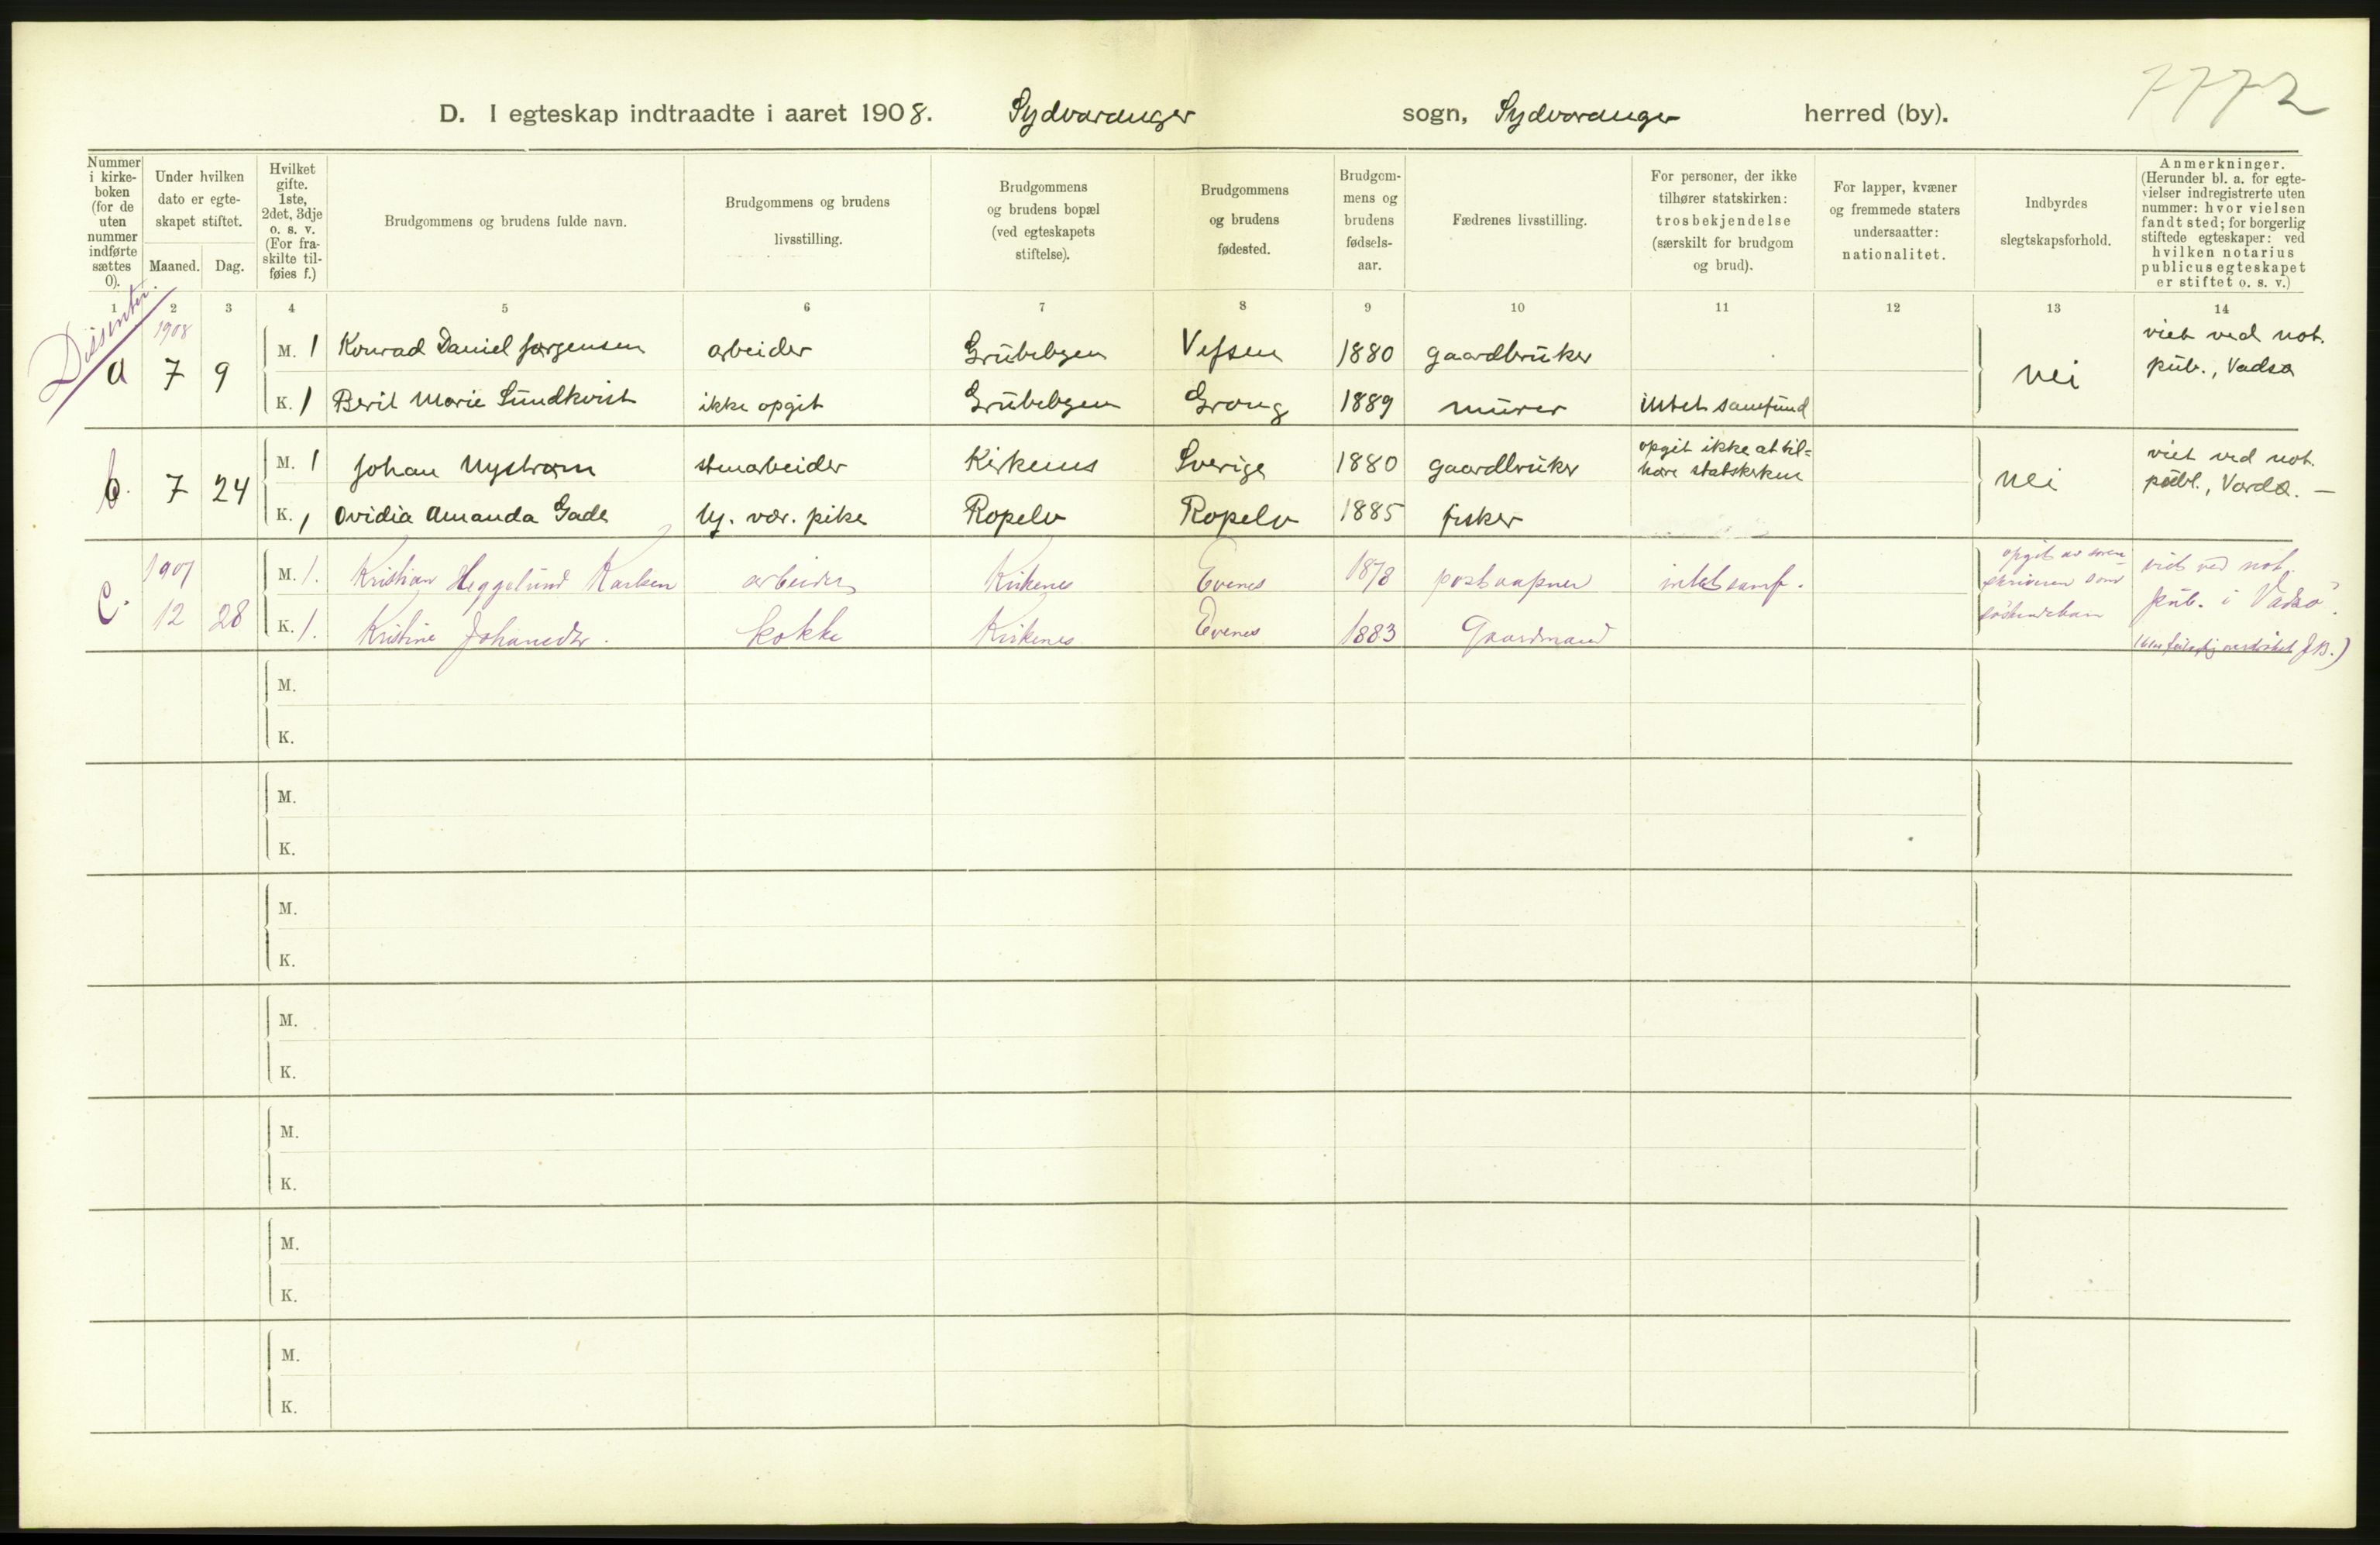 7772
D. I egteskap indtraadte i aaret 1908. Sydvaranger sogn, Sydvaranger herred (by).
Nummer i kirke-boken (for de uten nummer indførte sættes 0).
Under hvilken dato er egte-skapet stiftet.
Maaned. Dag.
Hvilket gifte. 1ste, 2det, 3dje o. s. v. (For fra-skilte til-føies f.)
Brudgommens og brudens fulde navn.
Brudgommens og brudens livsstilling.
Brudgommens og brudens bopæl (ved egteskapets stiftelse).
Brudgommens og brudens fødested.
Brudgom-mens og brudens fødsels-aar.
Fædrenes livsstilling.
For personer, der ikke tilhører statskirken: trosbekjendelse (særskilt for brudgom og brud).
For lapper, kvæner og fremmede staters undersaatter: nationalitet.
Indbyrdes slegtskapsforhold.
Anmerkninger. (Herunder bl. a. for egte-vielser indregistrerte uten nummer: hvor vielsen fandt sted; for borgerlig stiftede egteskaper: ved hvilken notarius publicus egteskapet er stiftet o. s. v.)
1 2 3 4 5 6 7 8 9 10 11 12 13 14
Dissenter.
1908
a 7 9
M. 1 Konrad Daniel Jørgensen arbeider Grübebyen Vefsen 1880 gaardbrüker
K. 1 Beril Marie Sündkvist ikke opgit Grübebyen Grong 1889 mürer intet samfünd
nei
viet ved not. püb., Vadsø
b. 7 24
M. 1 Johan Nystrøm stenarbeider Kirkenes Sverige 1880 gaardbrüker opgit ikke at til=høre statskirken
K. 1 Ovidia Amanda Gade hj. vær. pike Ropelv Ropelv 1885 fisker
nei
viet ved not. publ., Vardø. —
c. 1907 12 28
M. 1. Kristian Heggelünd Karlsen arbeider Kirkenes Evenes 1878 postaapner intet samf.
K. 1. Kristine Johansdtr. kokke Kirkenes Evenes 1883 Gaardmand
opgit av soren skriveren som søskendebarn
viet ved not. püb. i Vadsö.
J.B.)
M.
K.
M.
K.
M.
K.
M.
K.
M.
K.
M.
K.
M.
K.